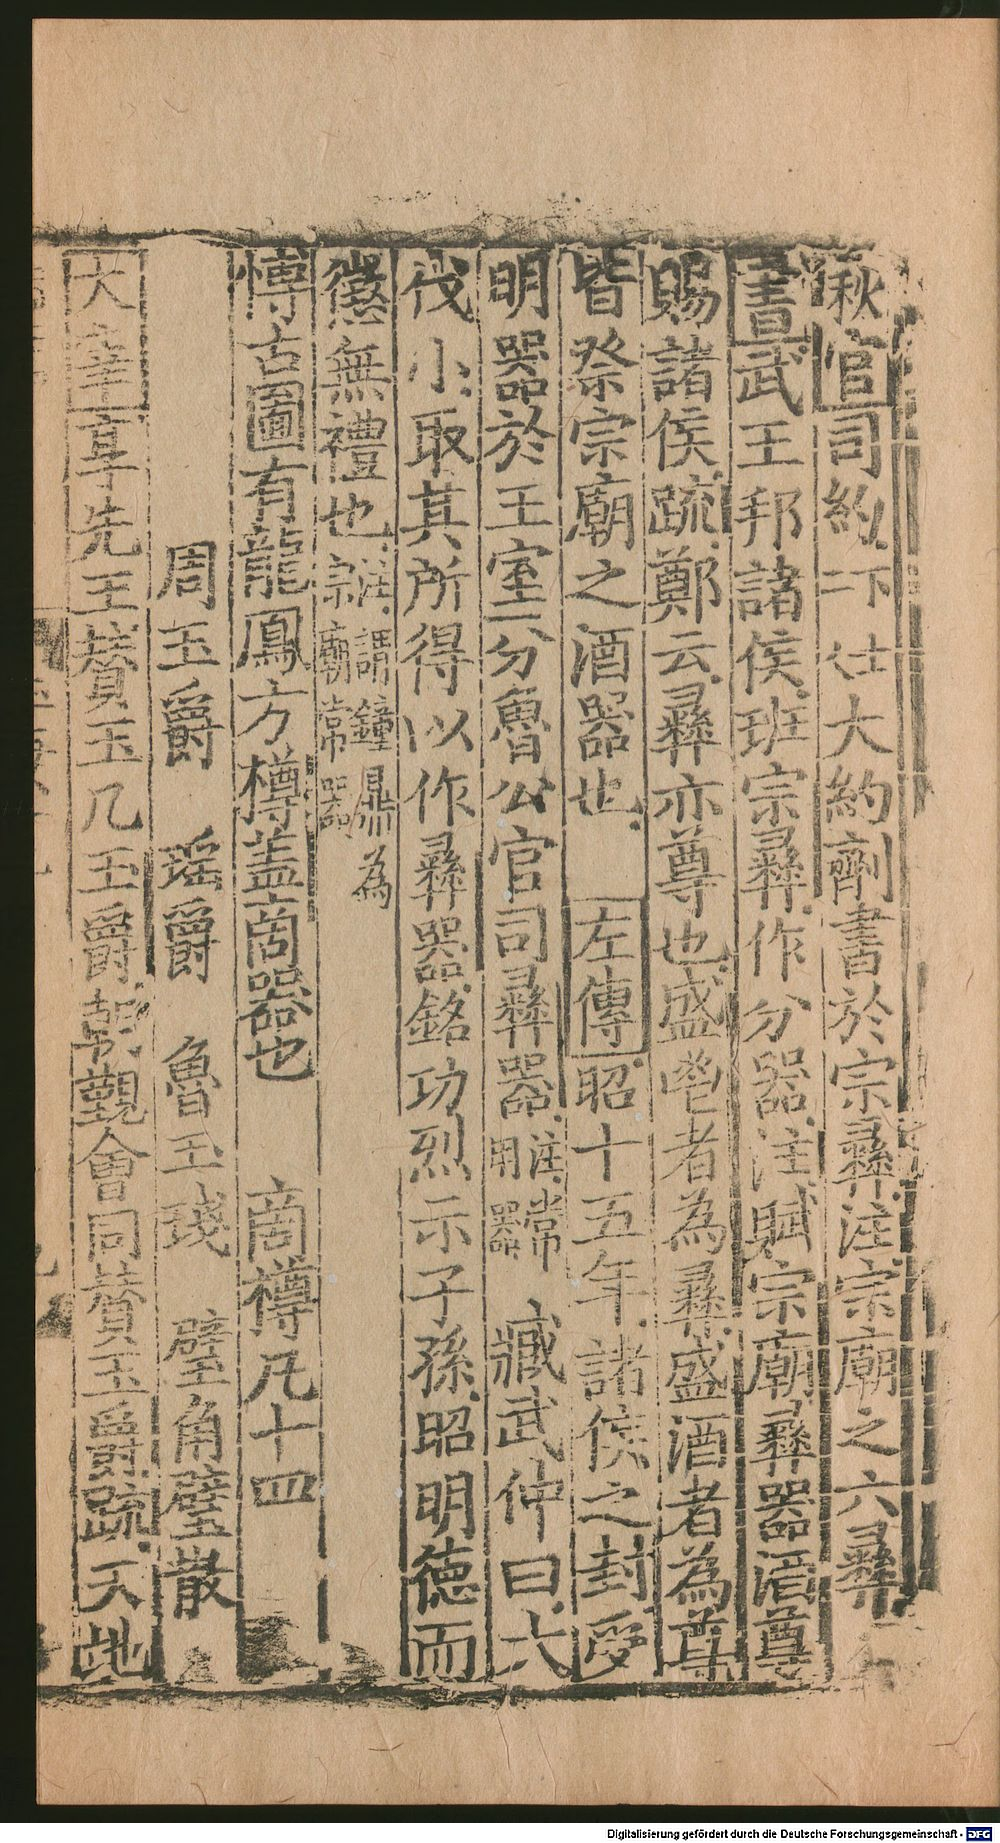 秋官司約邦大約劑書於宗彝注宗廟之六彝
書武王邦諸侯班宗彝作分器注賦宗廟彝器酒尊
賜諸侯疏鄭云彝亦尊也盛鬯者為彝盛酒者為尊
皆祭宗廟之酒器也 左傳昭十五年諸侯之封受
明器於王室 分魯公官司彝器注常用器 臧武仲曰大
伐小取其所得以作彝器銘功烈示子孫昭明德而
懲無禮也注謂鐘鼎為宗廟常器
博古圖有龍鳳方樽盖商器也 商樽凡十四
周玉爵 瑤爵 魯玉琖 璧角璧散
大宰享先王贊玉几玉爵朝覲會同贊玉爵疏天地
Digitalisierung gefördert durch die Deutsche Forschungsgemeinschaft - DFG